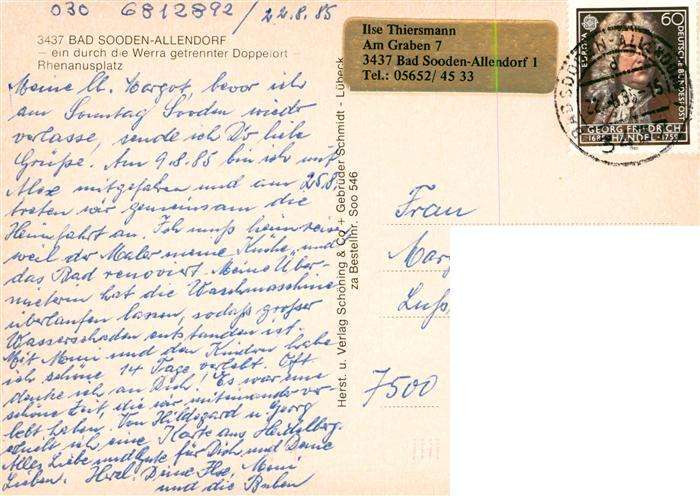 030 6812892 / 22.8.85
3437 BAD SOODEN-ALLENDORF
— ein durch die Werra getrennter Doppelort —
Rhenanusplatz
Meine lb. Margot, bevor ich
am Sonntag Sooden wieder
verlasse, sende ich Dir liebe
Grüße. Am 9.8.85 bin ich mit
Alex mitgefahren und am 25.8.
treten wir gemeinsam die
Heimfahrt an. Ich muß heimreisen
weil der Maler meine Küche, und
das Bad renoviert. Meine Über-
mieterin hat die Waschmaschine
überlaufen lassen, sodaß großer
Wasserschaden entstanden ist.
Mit Moni und den Kindern habe
ich schöne 14 Tage verlebt. Oft
denke ich an Dich! Es war eine
schöne Zeit, die wir miteinander ver-
lebt haben. Von Hildegard u. Georg
erhielt ich eine Karte aus Heidelberg.
Alles Liebe und Gute für Dich und Deine
Lieben. Herzl. Deine Ilse, Moni
und die Buben
Herst. u. Verlag Schöning & Co + Gebrüder Schmidt - Lübeck
zu Bestellnr. Soo 546
Ilse Thiersmann
Am Graben 7
3437 Bad Sooden-Allendorf 1
Tel.: 05652/ 45 33
EUROPA
60
DEUTSCHE BUNDESPOST
GEORG FRIEDRICH
1685 HÄNDEL 1759
BAD SOODEN-ALLENDORF
Frau
Marg
Luß
7500